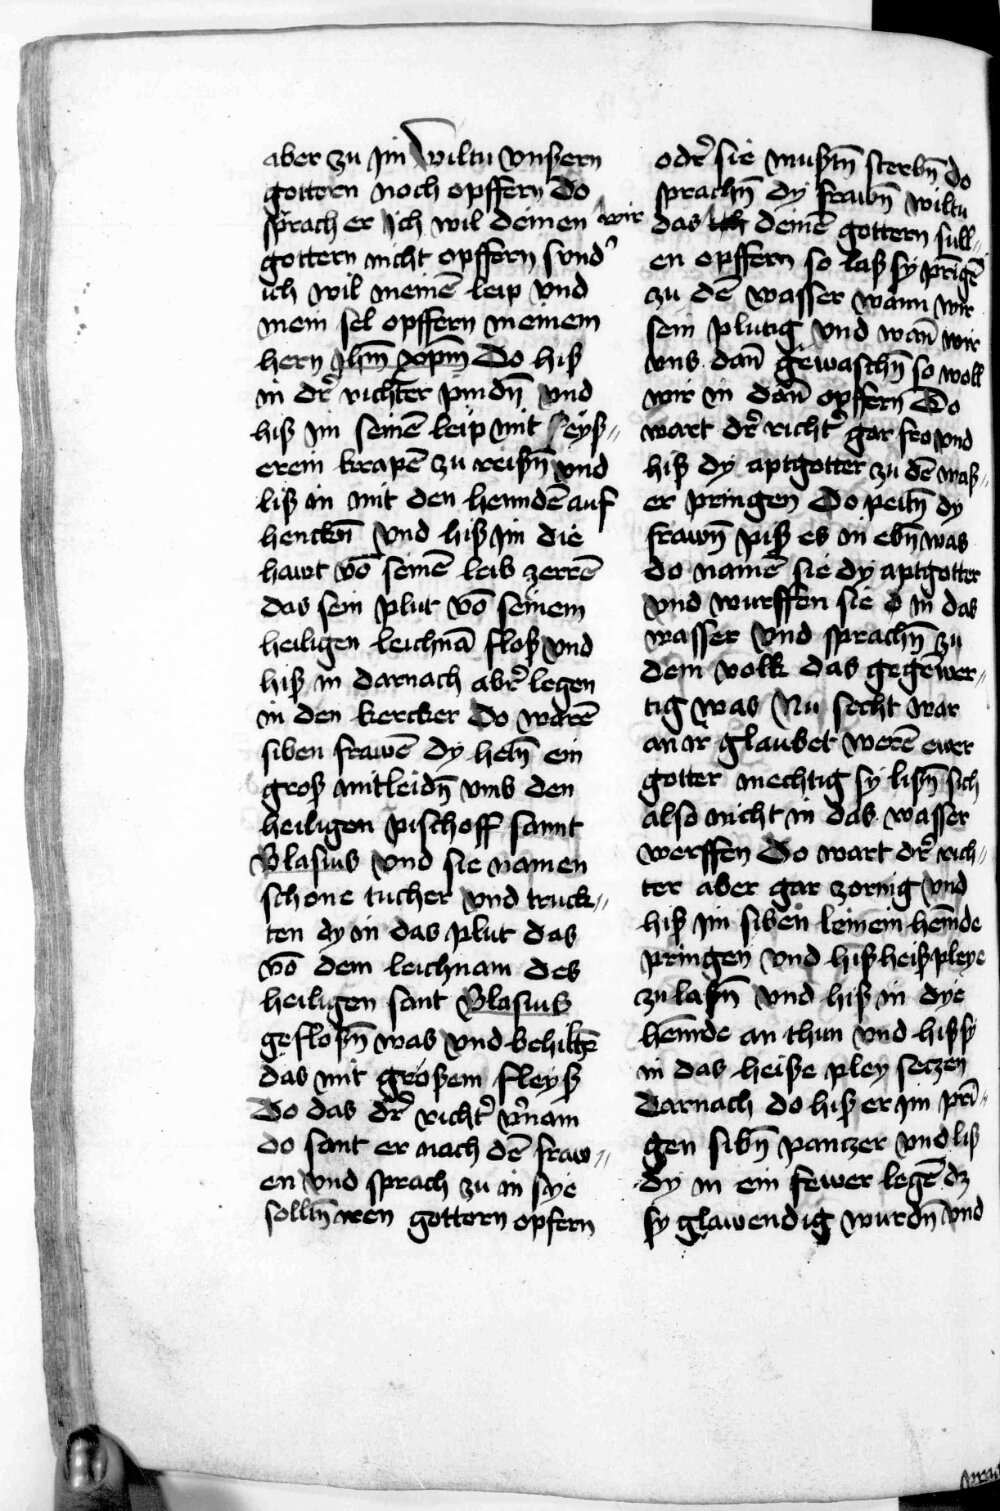 aber zu jm Wiltu vnßern
gottern noch opffern Do
sprach er Ich wil deinen
gottern nicht opffern sund'
ich wil meinē leip vnd
mein sel opffern meinem
hern Jhm̄ xpm̄ Do hiß
in dr̄ richter pindn̄ vnd
hiß im seinē leip mit seyß〃
erein krapē zu reißn̄ vnd
liß in mit den henndē auf
henckn̄ vnd hiß jm die
hawt vō seinē leib zerrē
das sein plut vō seinem
heiligen leichnā floß vnd
hiß in darnach abr̄ legen
in den kercker Do warē
siben frawē dy hetn̄ ein
groß mitleidn̄ vmb den
heiligen pischoff sannt
Blasius vnd sie namen
schone tucher vnd truck〃
ten dy in das plut das
vō dem leichnam des
heiligen sant Blasius
gefloßn̄ was vnd behiltē
das mit großem fleyß
Do das dr̄ richt' v'nam
do sant er nach dē fraw〃
en vnd sprach zu in sye
solltn̄ iren gottern opfern
odr̄ sie mustn̄ sterbn̄ do
sprachn̄ dy frawn̄ wiltu
wir das ich deinē gottern sull〃
en opffern so laß sy prīgē
zu dē wasser wann wir
sein plutig vnd wan̄ wir
vns dan̄ gewaschn̄ so woll
wir in dan̄ opffern Do
wart dr̄ richt' gar fro vnd
hiß dy aptgotter zu dē waß〃
er pringen Do peitn̄ dy
frawn̄ piß es in ebn̄ was
do namē sie dy aptgotter
vnd wurffen sie in das
wasser vnd sprachn̄ zu
dem volk das gegēwer〃
tig was Nu secht war
an ir glaubet werē ewer
gotter mechtig sy lißn̄ sich
also nicht in das wasser
werffen Do wart dr̄ rich〃
ter aber gar zornig vnd
hiß im siben leinein hēmde
pringen vnd hiß heiß pleye
zulaßn̄ vnd hiß in dye
hēmde an thun vnd hiß sy
in das heiße pley seczen
Darnach do hiß er im prī〃
gen sibn̄ panczer vnd liß
dy in ein fewer legē dz
sy glawendig wurdn̄ vnd